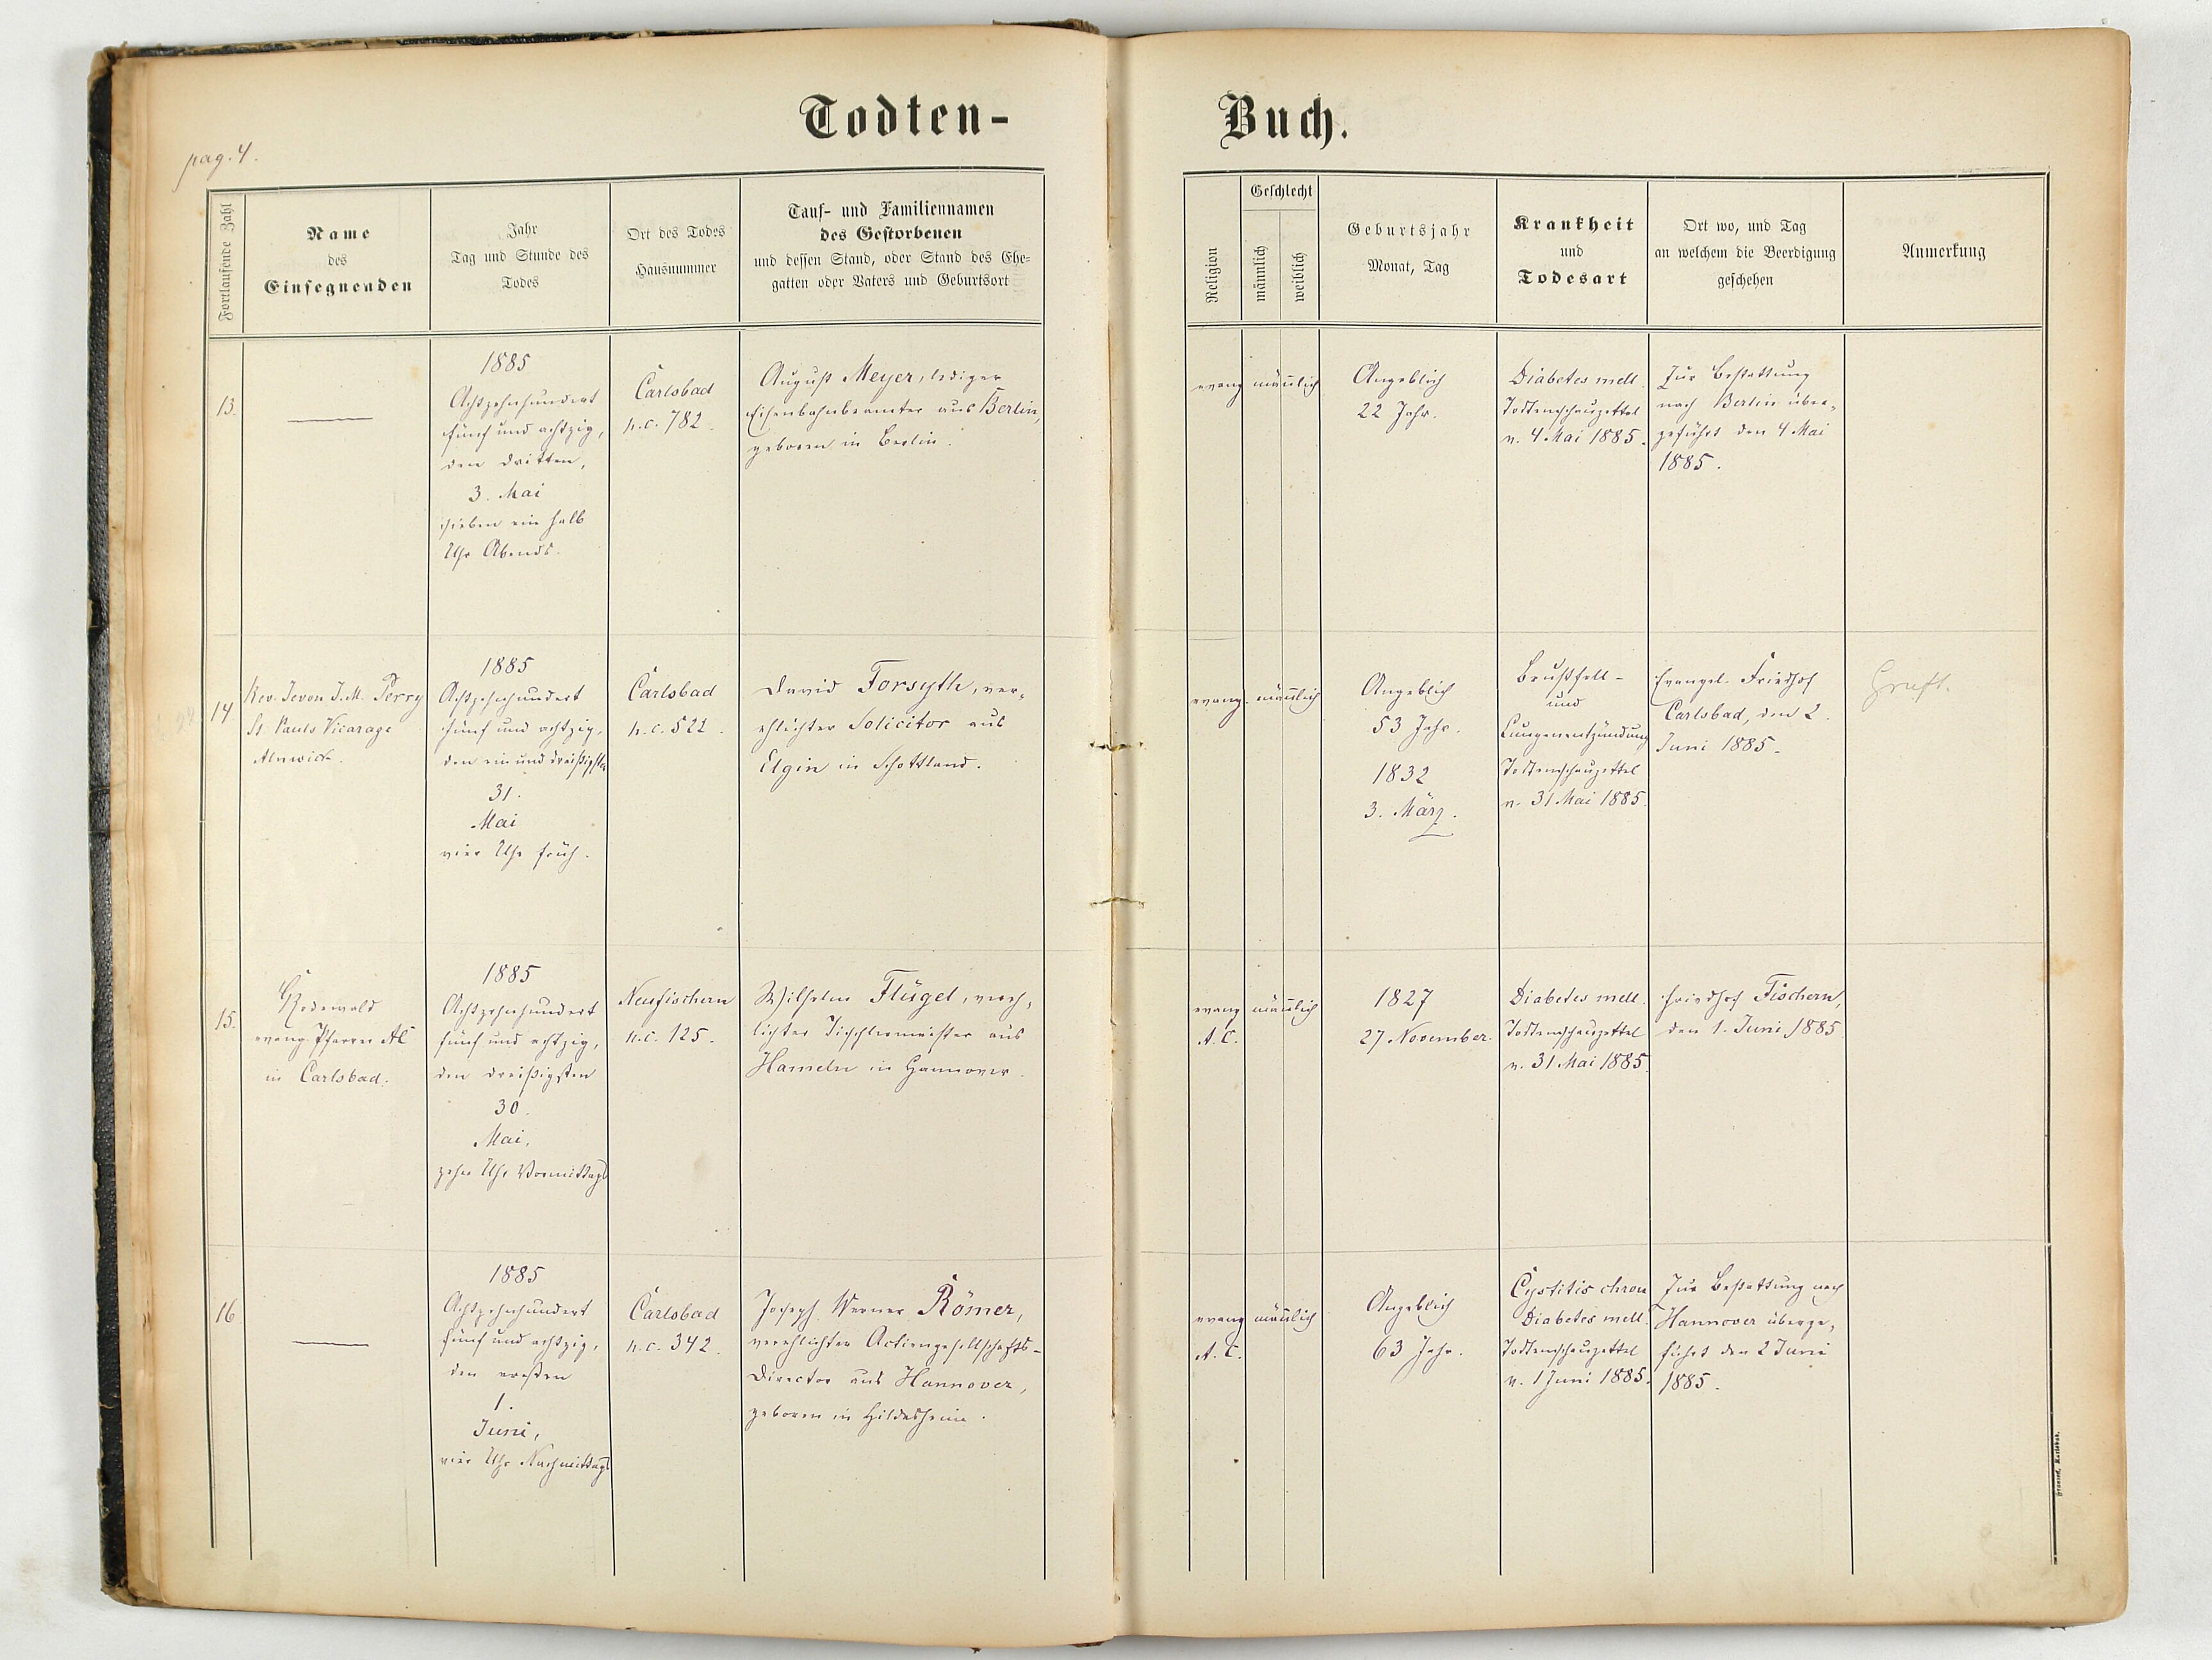 Todten-
Buch.
pag. 4.
Fortlaufende Zahl
Name
des
Einsegnenden
Jahr
Tag und Stunde des
Todes
Ort des Todes
Hausnummer
Tauf- und Familiennamen
des Gestorbenen
und dessen Stand, oder Stand des Ehe-
gatten oder Vaters und Geburtsort
Religion
Geschlecht
männlich
weiblich
Geburtsjahr
Monat, Tag
Krankheit
und
Todesart
Ort wo, und Tag
an welchem die Beerdigung
geschehen
Anmerkung
13.
1885
Achtzehnhundert
fünf und achtzig,
den dritten,
3. Mai
sieben ein halb
Uhr Abends.
Carlsbad
n.c. 782.
August Meyer, lediger
Eisenbahnbeamter aus Berlin,
geboren in Berlin.
evang
männlich
Angeblich
22 Jahr.
Diabetes mell.
Todtenschauzettel
v. 4 Mai 1885.
Zur Bestattung
nach Berlin über-
geführt den 4 Mai
1885.
14
Rev. Jevon J.M. Perry
St. Pauls Vicarage
Alnwick.
1885
Achtzehnhundert
fünf und achtzig,
den ein und dreißigsten
31.
Mai
vier Uhr früh.
Carlsbad
n.c. 522.
David Forsyth, ver-
ehlichter Solicitor aus
Elgin in Schottland.
evang.
männlich
Angeblich
53 Jahr.
1832
3. März.
Brustfell-
und
Lungenentzündung
Todtenschauzettel
v. 31 Mai 1885.
Evangel. Friedhof
Carlsbad, den 2.
Juni 1885.
Gruft.
15.
Rodewald
evang. Pfarrer AC
in Carlsbad.
1885
Achtzehnhundert
fünf und achtzig,
den dreißigsten
30.
Mai,
zehn Uhr Vormittags
Neufischern
n.c. 125.
Wilhelm Flügel, vereh-
lichter Tischlermeister aus
Hameln in Hannover.
evang
A. C.
männlich
1827
27 November.
Diabetes mell.
Todtenschauzettel
v. 31 Mai 1885.
Friedhof Fischern,
den 1. Juni 1885
16
1885
Achtzehnhundert
fünf und achtzig,
den ersten
1.
Juni,
vier Uhr Nachmittags
Carlsbad
n.c. 342.
Joseph Werner Römer,
verehlichter Actiengesellschafts-
Director aus Hannover,
geboren in Hildesheim.
evang
A. C.
männlich
Angeblich
63 Jahr.
Cystitis chron
Diabetes mell.
Todtenschauzettel
v. 1 Juni 1885.
Zur Bestattung nach
Hannover überge-
führt den 2 Juni
1885.